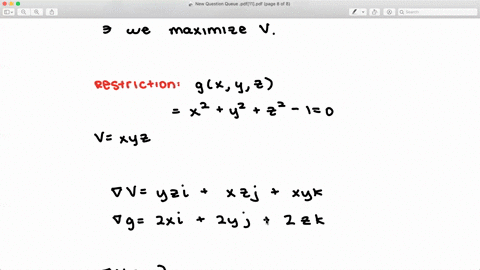 New Question Queue .pdf[11].pdf (page 6 of 8)
∋ we maximize V.
Restriction: g(x,y,z)
= x² + y² + z² - 1 = 0
V = xyz
∇V = yzi + xzj + xyk
∇g = 2xi + 2yj + 2zk